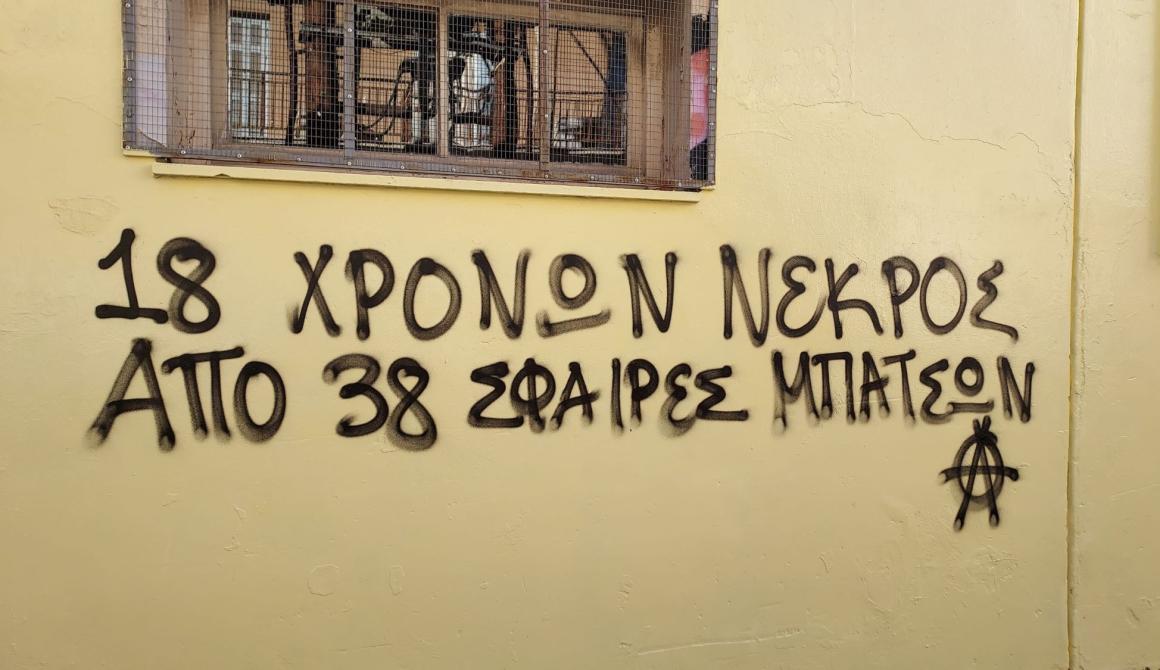 18 ΧΡΟΝΩΝ ΝΕΚΡΟΣ
ΑΠΟ 38 ΣΦΑΙΡΕΣ ΜΠΑΤΣΩΝ
Α